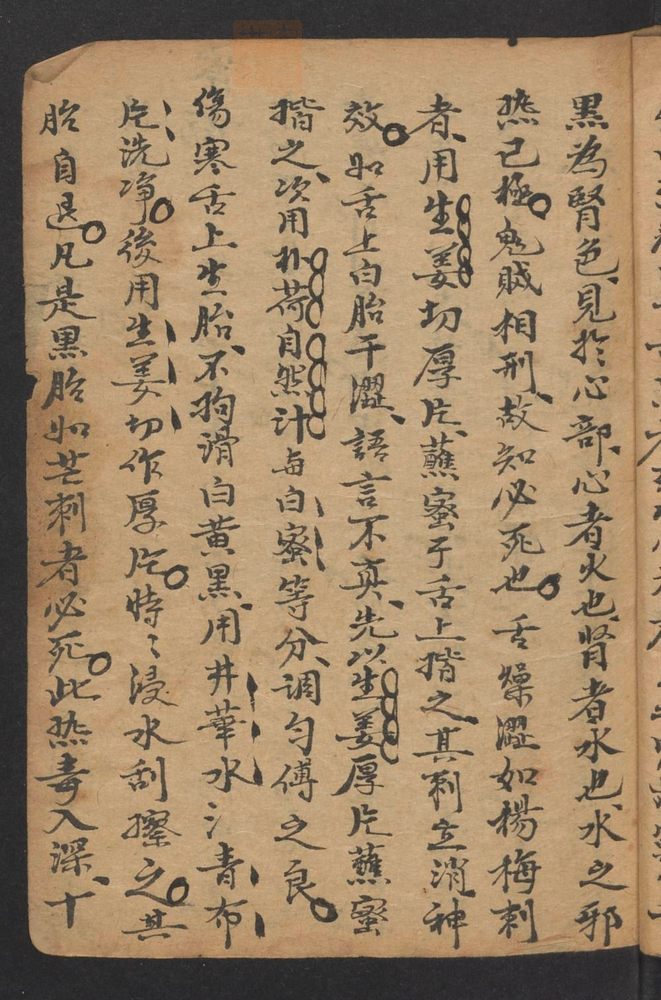 黑為腎色、見於心部、心者火也、腎者水也、水之邪
热已極。鬼賊相刑、故知必死也。舌燥澀如楊梅刺
者、用生姜切厚片、蘸蜜于舌上揩之、其刺立消、神
效。如舌上白胎干澀、語言不真、先以生姜厚片蘸蜜
揩之、次用朴荷自然汁与白蜜等分、調勻傅之良。
傷寒舌上生胎、不拘滑白黄黑、用井華水氵青布
片洗净。後用生姜切作厚片。時〻浸水刮擦之。其
胎自退。凡是黑胎如芒刺者必死。此热毒入深、十